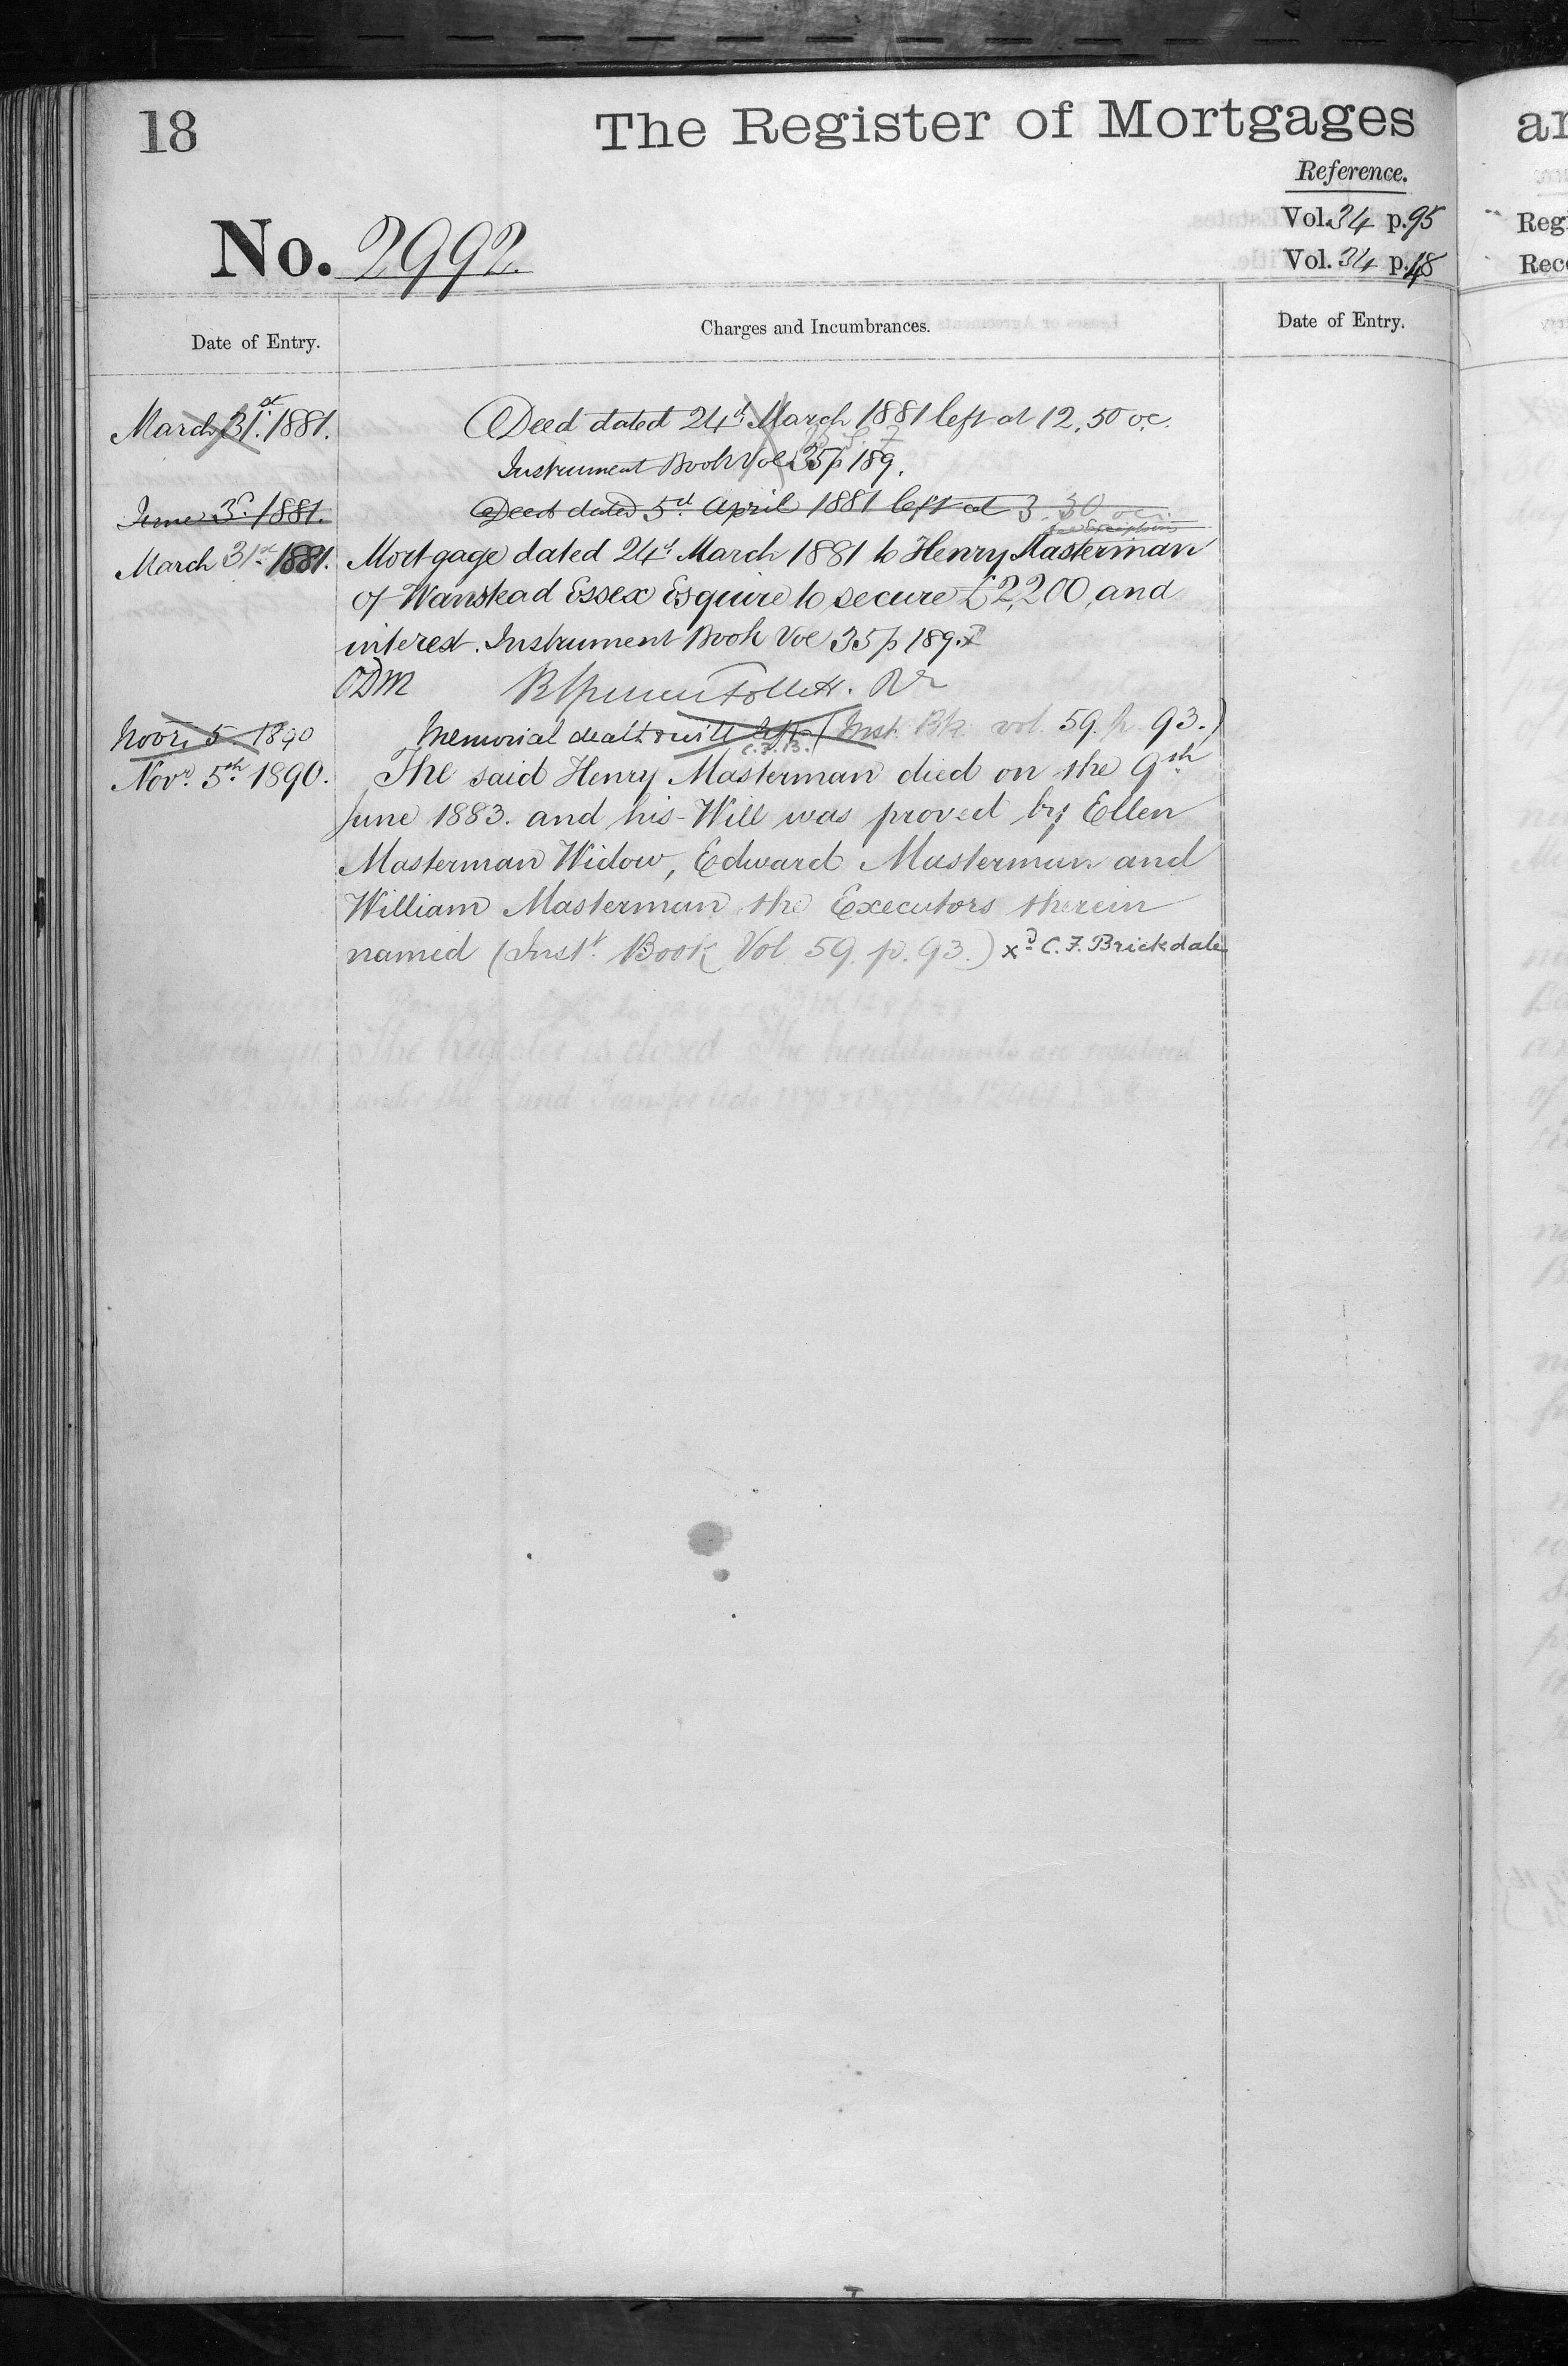 18
The Register of Mortgages
Reference.
No. 2992.
Vol. 34 p. 95
Vol. 34 p. 18
Date of Entry.
Charges and Incumbrances.
Date of Entry.
March 31st. 1881. Deed dated 24th March 1881 left at 12.50 oc.
Instrument Book Vol 35 p 189.
June 3d. 1881. Deed dated 5th April 1881 left at 3.30 oc.
March 31st. 1881. Mortgage dated 24th March 1881 to Henry Masterman
of Wanstead Essex Esquire to secure £2,200, and
interest. Instrument Book Vol 35 p 189. x
ODM R Spencer Follett. Rr
Novr. 5. 1890 Memorial death & will left (Inst. Bk. vol. 59. p. 93.)
C.F.B.
Novr. 5th. 1890. The said Henry Masterman died on the 9th
June 1883. and his Will was proved by Ellen
Masterman Widow, Edward Masterman and
William Masterman the Executors therein
named (Instt. Book Vol. 59. p. 93.) xd C.F. Brickdale
The Register is closed The hereditaments are registered
under the Land Transfer Acts 1875 & 1897
ar
Reg
Rec